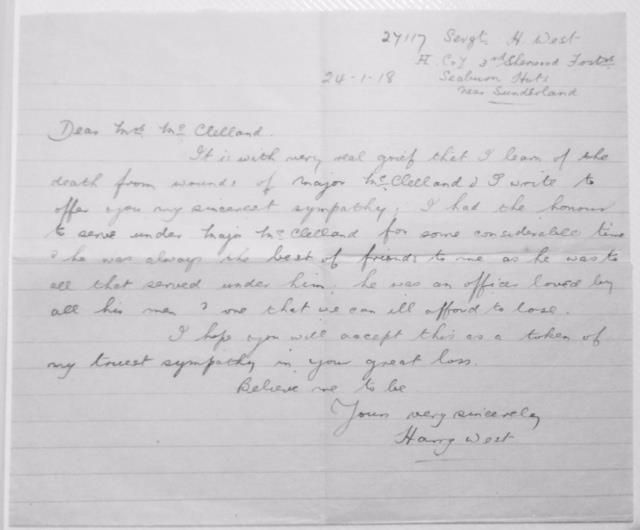 27117 Sergt H. West
A Coy 3rd Sherwood Forest
24-1-18 Seaburn Huts
near Sunderland
Dear Mrs Mc Clelland.
It is with very real grief that I learn of the
death from wounds of Major Mc Clelland & I write to
offer you my sincerest sympathy; I had the honour
to serve under Major Mc Clelland for some considerable time
& he was always the best of friends to me as he was to
all that served under him, he was an officer loved by
all his men & one that we can ill afford to lose.
I hope you will accept this as a token of
my truest sympathy in your great loss.
Believe me to be
Yours very sincerely
Harry West